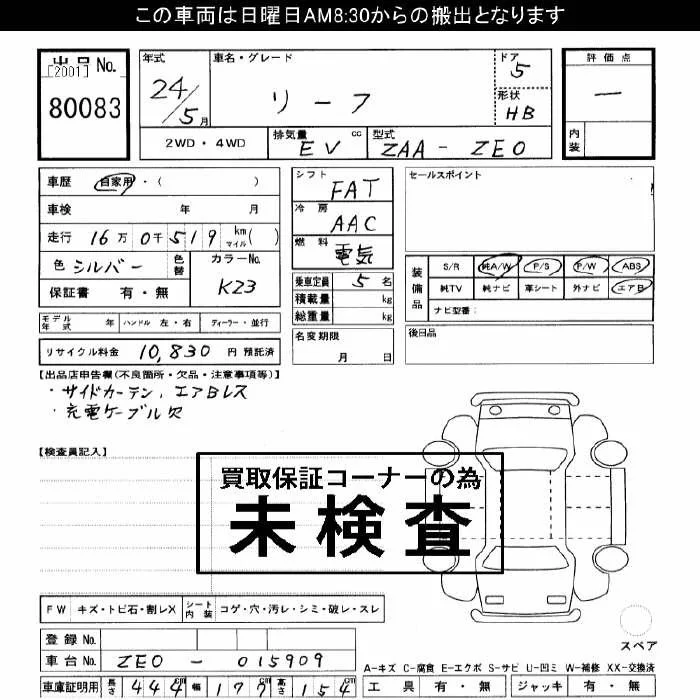 この車両は日曜日AM8:30からの搬出となります
出品 No.
[2001]
80083
年式
24/5月
車名・グレード
リーフ
ドア
5
形状
HB
評価点
—
内装
2WD・4WD
排気量 cc
EV
型式
ZAA-ZEO
車歴 自家用・( )
車検 年 月
走行 16万0千519 km マイル( )
色 シルバー 色替
カラーNo.
K23
保証書 有・無
シフト
FAT
冷房
AAC
燃料
電気
セールスポイント
装備品
S/R 純A/W P/S P/W ABS
純TV 純ナビ 革シート 外ナビ エアB
ナビ型番:
乗車定員 5 名
積載量 kg
総重量 kg
モデル年式 年 ハンドル 左・右 ディーラー・並行
名変期限
月 日
後日品
リサイクル料金 10,830 円 預託済
【出品店申告欄(不良箇所・欠品・注意事項等)】
・サイドカーテン、エアBレス
・充電ケーブル欠
【検査員記入】
買取保証コーナーの為
未検査
FW キズ・トビ石・割レX シート内装 コゲ・穴・汚レ・シミ・破レ・スレ
登録 No.
スペア
車台 No. ZEO - 015909
A-キズ C-腐食 E-エクボ S-サビ U-凹ミ W-補修 XX-交換済
車庫証明用 長さ 444cm 幅 177cm 高さ 154cm
工具 有・無 ジャッキ 有・無